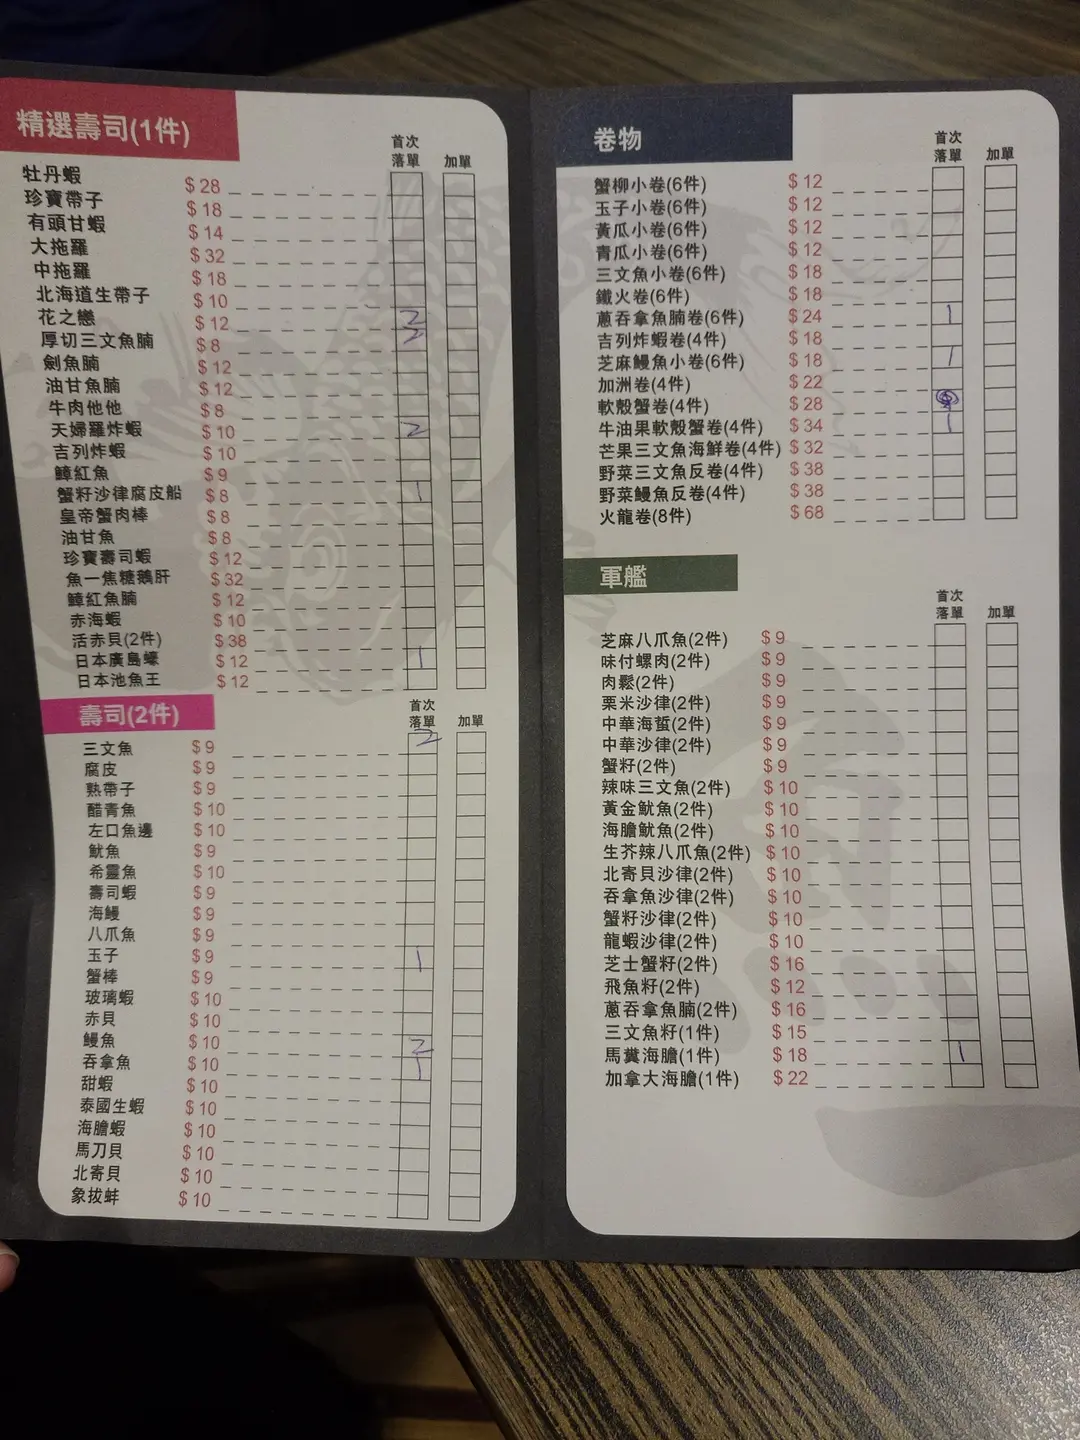 精選壽司(1件)
首次落單 加單
牡丹蝦 $28
珍寶帶子 $18
有頭甘蝦 $14
大拖羅 $32
中拖羅 $18
北海道生帶子 $10
花之戀 $12 2
厚切三文魚腩 $8 2
劍魚腩 $12
油甘魚腩 $12
牛肉他他 $8
天婦羅炸蝦 $10 2
吉列炸蝦 $10
鱆紅魚 $9
蟹籽沙律腐皮船 $8 1
皇帝蟹肉棒 $8
油甘魚 $8
珍寶壽司蝦 $12
魚一焦糖鵝肝 $32
鱆紅魚腩 $12
赤海蝦 $10
活赤貝(2件) $38
日本廣島蠔 $12 1
日本池魚王 $12
壽司(2件)
首次落單 加單
三文魚 $9 2
腐皮 $9
熟帶子 $9
醋青魚 $10
左口魚邊 $10
魷魚 $9
希靈魚 $10
壽司蝦 $9
海鰻 $9
八爪魚 $9
玉子 $9 1
蟹棒 $9
玻璃蝦 $10
赤貝 $10
鰻魚 $10 2
吞拿魚 $10 1
甜蝦 $10
泰國生蝦 $10
海膽蝦 $10
馬刀貝 $10
北寄貝 $10
象拔蚌 $10
卷物
首次落單 加單
蟹柳小卷(6件) $12
玉子小卷(6件) $12
黃瓜小卷(6件) $12
青瓜小卷(6件) $12
三文魚小卷(6件) $18
鐵火卷(6件) $18
蔥吞拿魚腩卷(6件) $24 1
吉列炸蝦卷(4件) $18
芝麻鰻魚小卷(6件) $18 1
加洲卷(4件) $22
軟殼蟹卷(4件) $28
牛油果軟殼蟹卷(4件) $34 1
芒果三文魚海鮮卷(4件) $32
野菜三文魚反卷(4件) $38
野菜鰻魚反卷(4件) $38
火龍卷(8件) $68
軍艦
首次落單 加單
芝麻八爪魚(2件) $9
味付螺肉(2件) $9
肉鬆(2件) $9
栗米沙律(2件) $9
中華海蜇(2件) $9
中華沙律(2件) $9
蟹籽(2件) $9
辣味三文魚(2件) $10
黃金魷魚(2件) $10
海膽魷魚(2件) $10
生芥辣八爪魚(2件) $10
北寄貝沙律(2件) $10
吞拿魚沙律(2件) $10
蟹籽沙律(2件) $10
龍蝦沙律(2件) $10
芝士蟹籽(2件) $16
飛魚籽(2件) $12
蔥吞拿魚腩(2件) $16
三文魚籽(1件) $15
馬糞海膽(1件) $18 1
加拿大海膽(1件) $22